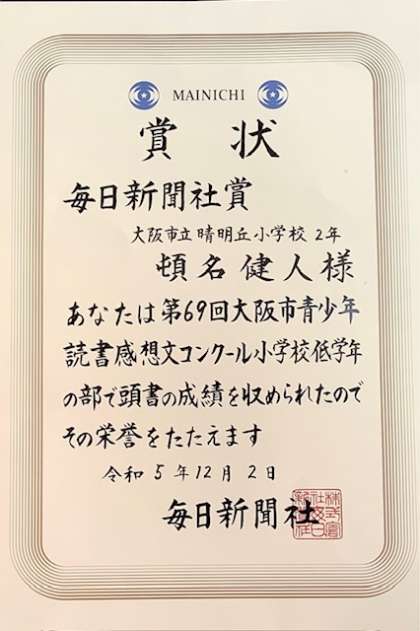 MAINICHI
賞状
毎日新聞社賞
大阪市立晴明丘小学校 2年
頓名健人様
あなたは第69回大阪市青少年
読書感想文コンクール小学校低学年
の部で頭書の成績を収められたので
その栄誉をたたえます
令和5年12月2日
毎日新聞社